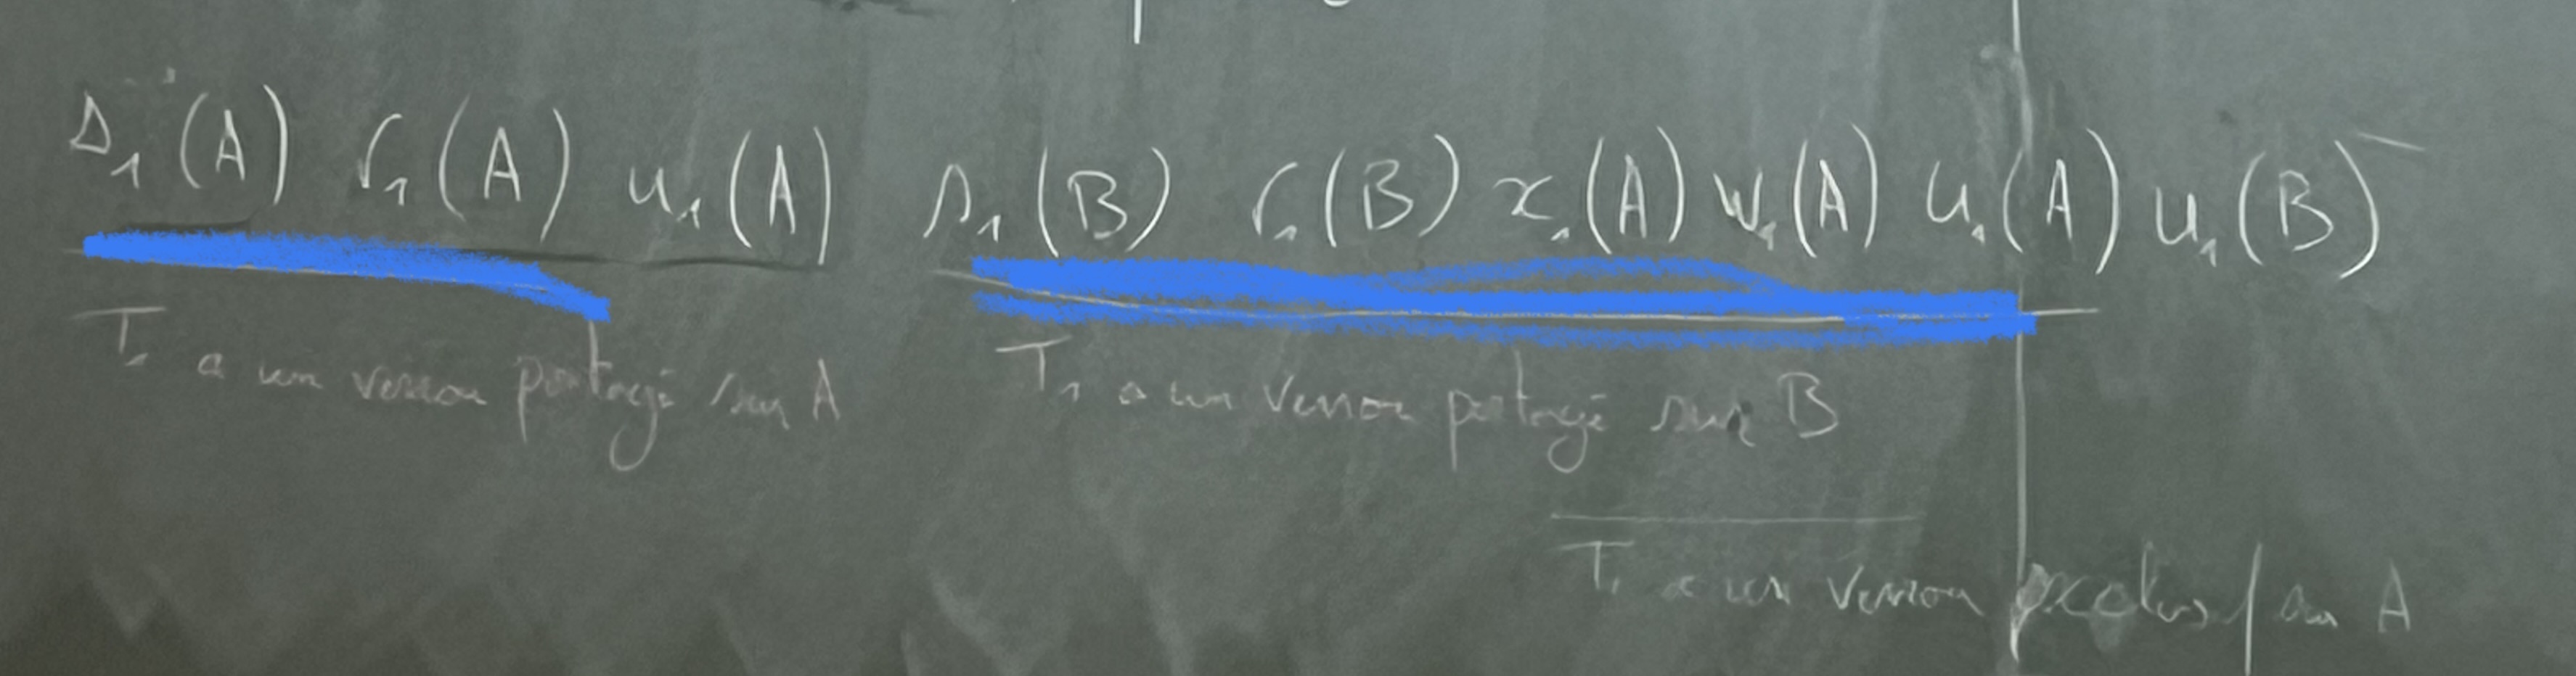 s₁(A) r₁(A) u₁(A) s₁(B) r₁(B) x₁(A) w₁(A) u₁(A) u₁(B)
T₁ a un verrou partagé sur A T₁ a un verrou partagé sur B
T₁ a un verrou exclusif sur A